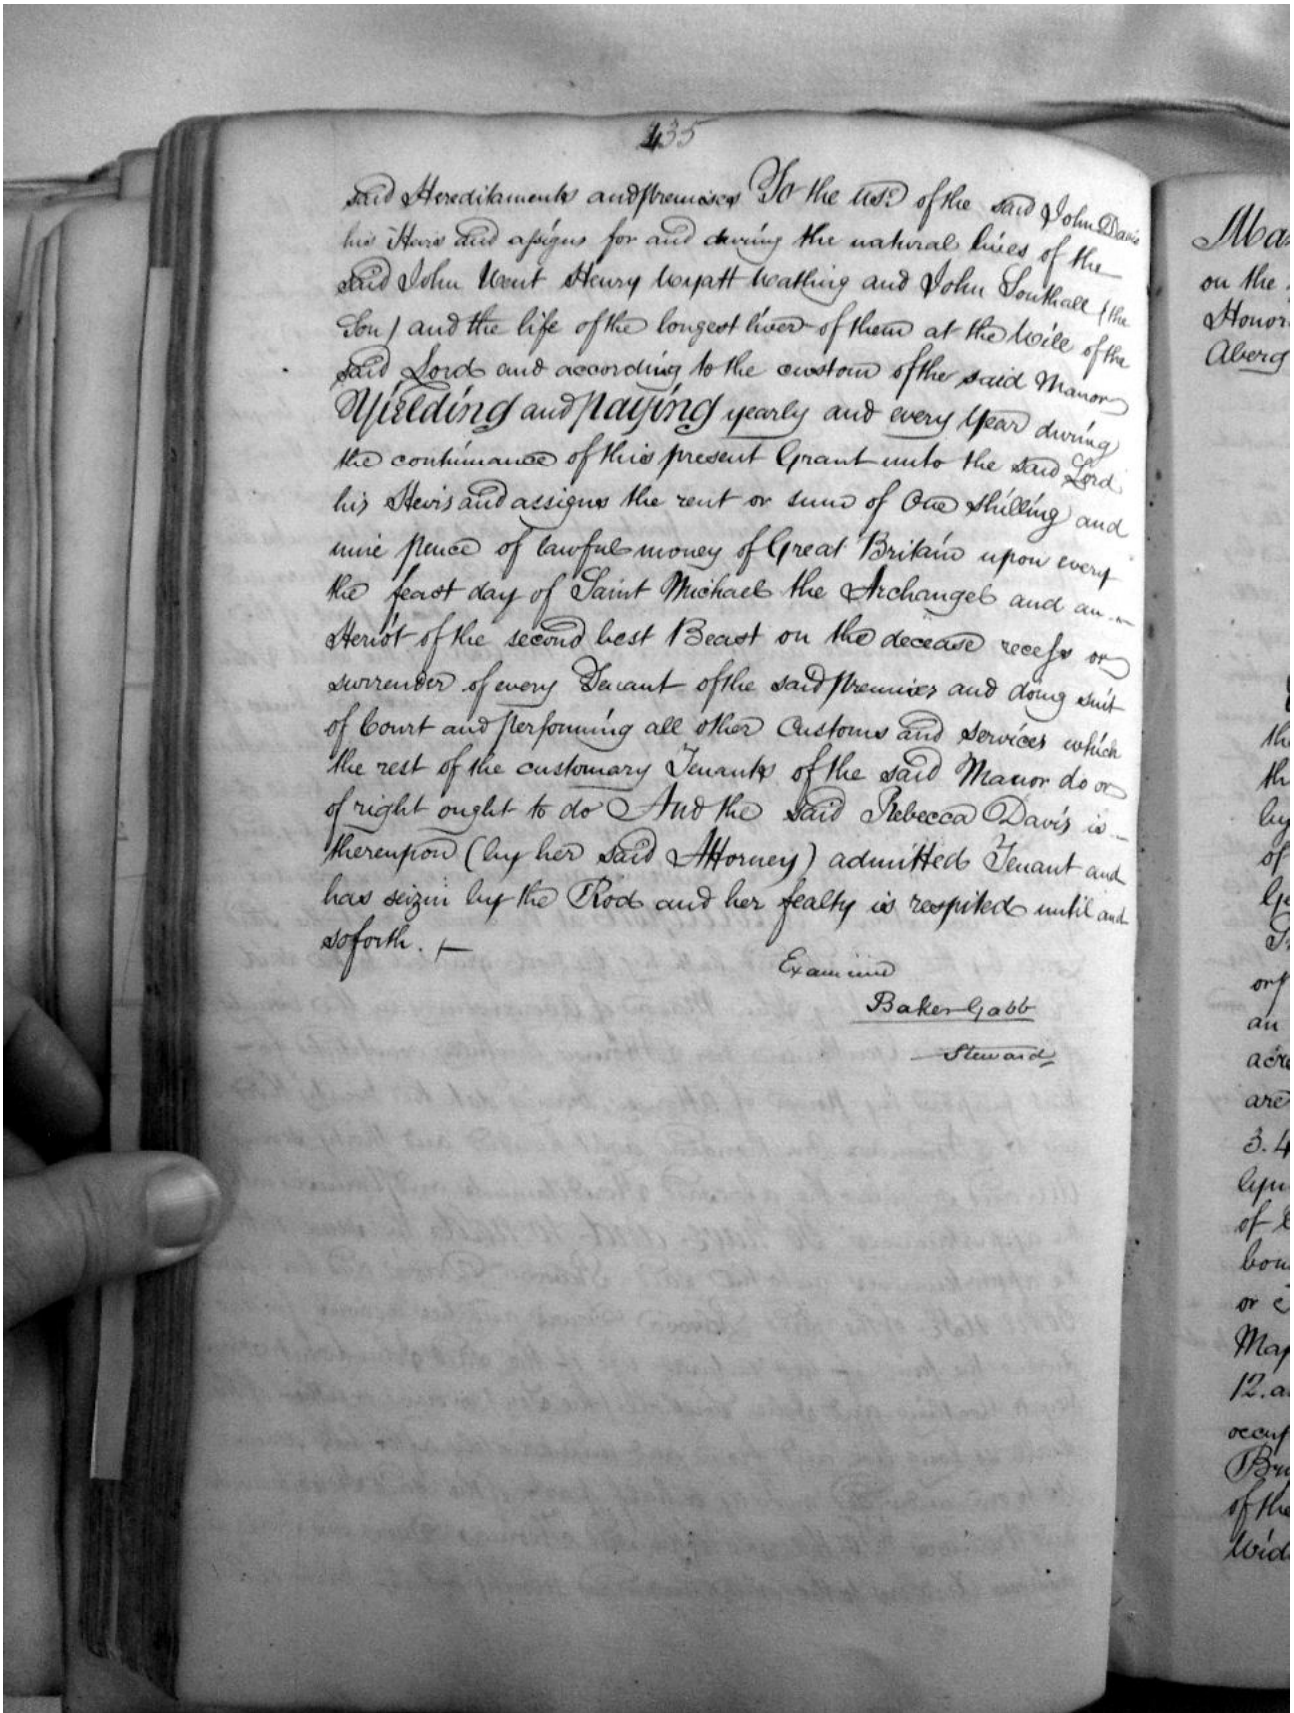 435
said Hereditaments and premises To the use of the said John Davis
his Heirs and assigns for and during the natural lives of the
said John Went Henry Wyatt Watling and John Southall (the
Son) and the life of the longest liver of them at the Will of the
said Lord and according to the custom of the said Manor
Yielding and paying yearly and every Year during
the continuance of this present Grant unto the said Lord
his Heirs and assigns the rent or sum of One Shilling and
nine pence of lawful money of Great Britain upon every
the feast day of Saint Michael the Archangel and an
Heriot of the second best Beast on the decease recess or
surrender of every Tenant of the said premises and doing suit
of Court and performing all other Customs and services which
the rest of the customary Tenants of the said Manor do or
of right ought to do And the said Rebecca Davis is
thereupon (by her said Attorney) admitted Tenant and
has seizin by the Rod and her fealty is respited until and
soforth.
Examined
Baker Gabb
Steward
on the
Honor
Aberg
the
th
by
of
an
acre
are
3.4
of
bou
or
Map
12. a
occup
of the
Wid